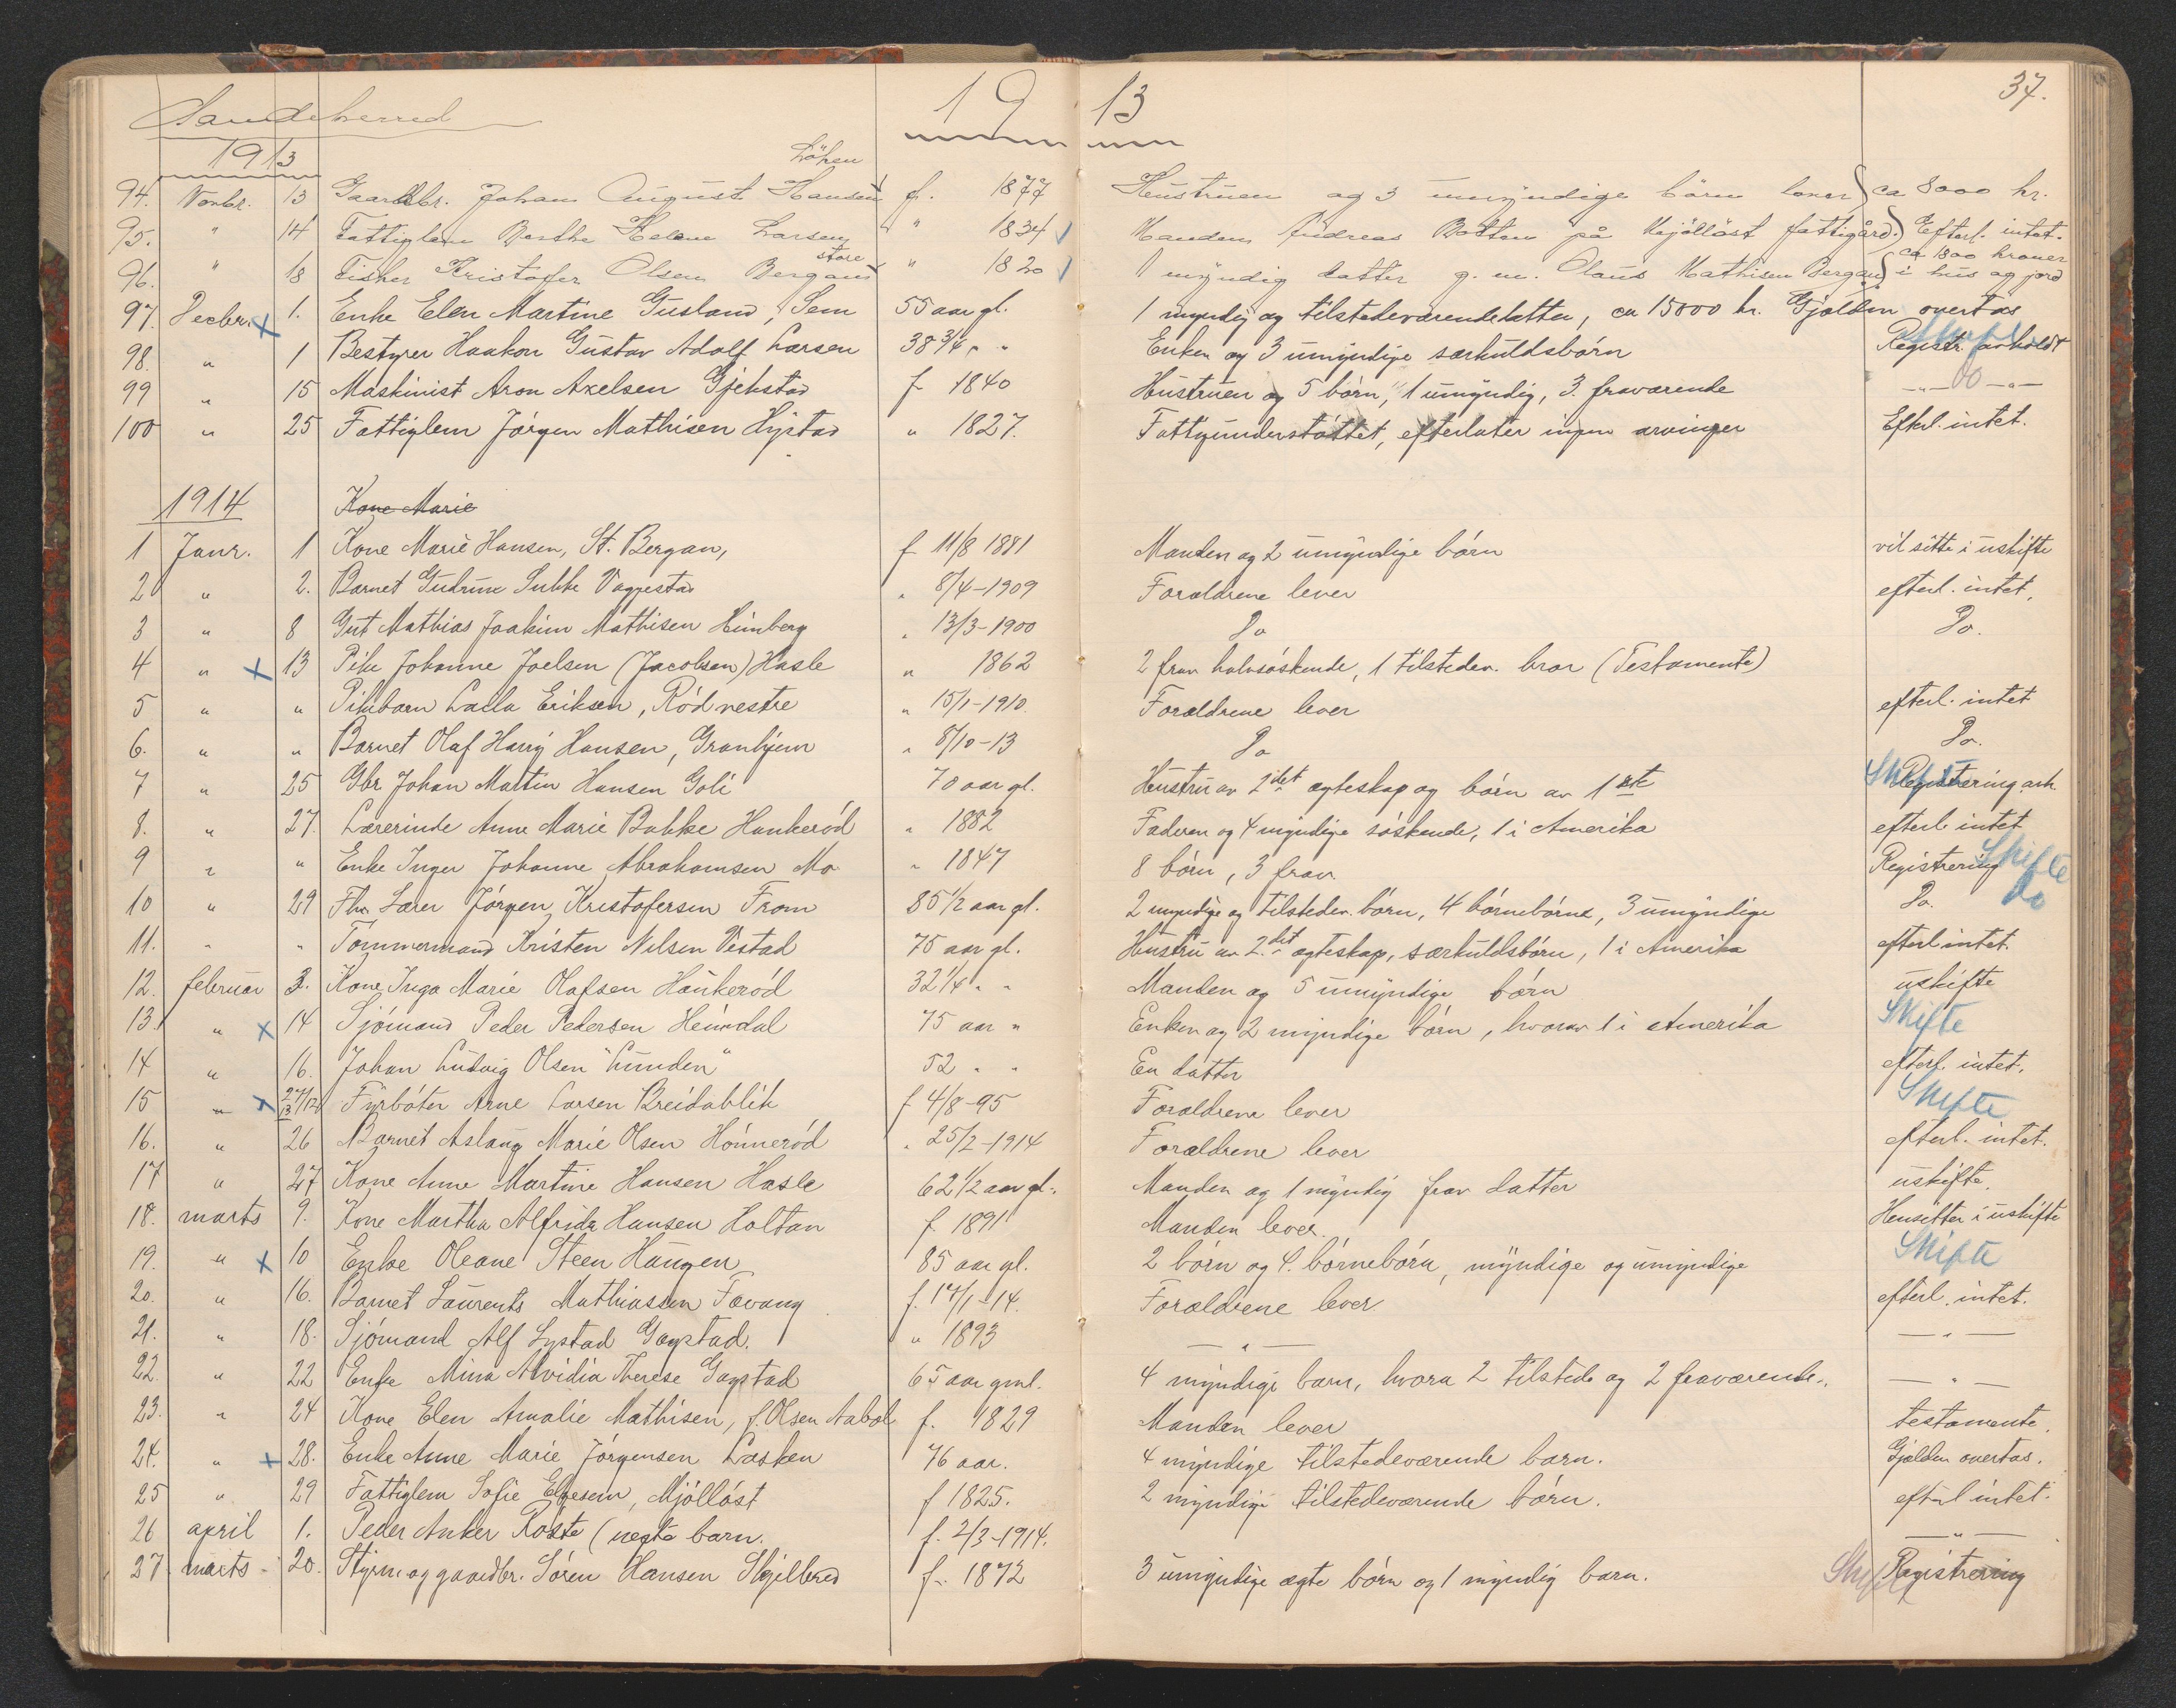 Sandeherred 19 13 37.
1913 Löken
94. Novbr. 13 Gaardbr. Johan August Hansen f. 1877 Hustruen og 3 umyndige börn lever ca 8000 kr.
95. " 14 Fattiglem Berthe Helene Larsen " 1834 Manden Andreas Botten på Mjölløst fattigård. Efterl. intet.
store ca 1800 kroner
96. " 18 Fisker Kristofer Olsen Bergan " 1820 1 myndig datter g. m. Olaus Mathisen Bergan i hus og jord
97. Decbr. x 1. Enke Elen Martine Gusland, Sem 55 aar gl. 1 myndig og tilstedeværende datter, ca 15000 kr. Gjælden overtas
98. " 1 Bestyrer Haakon Gustav Adolf Larsen 38 3/4 " " Enken og 3 umyndige særkuldsbørn Registr. avholdt
99 " 15 Maskinist Aron Axelsen Gjekstad f 1840 Hustruen og 5 børn, 1 umyndig, 3 fraværende — " —
100 " 25 Fattiglem Jørgen Mathisen Hystad " 1827. Fattigunderstøttet, efterlater ingen arvinger Efterl. intet.
1914 Kone Marie
1 Janr. 1 Kone Marie Hansen, St. Bergan, f 11/8 1881 Manden og 2 umyndige børn vil sitte i uskifte
2 " 2. Barnet Gudrun Lukke Vagnestad " 8/4-1909 Forældrene lever efterl. intet.
3 " 8 Gut Mathias Joakim Mathisen Himberg " 13/3-1900 Do Do.
4 " x 13 Pike Johanne Joelsen (Jacobsen) Hasle " 1862 2 frav. halvsøskende, 1 tilstedev. bror (Testamente)
5 " " Pikebarn Lalla Eriksen, Rød vestre " 15/1-1910. Forældrene lever efterl. intet
6. " " Barnet Olaf Harry Hansen, Granhjem " 8/10-13 Do Do.
7 " 25 Gbr Johan Martin Hansen Goli 70 aar gl. Hustru av 2det ægteskap og børn av 1ste Skifte Registrering avh.
8. " 27. Lærerinde Anne Marie Bakke Haukerød " 1882 Faderen og 4 myndige søskende, 1 i Amerika efterl. intet
9 " " Enke Inger Johanne Abrahamsen Mo " 1847 8 børn, 3 frav Registrering Skifte
10 " 29 Fhv. Lærer Jørgen Kristofersen From 85 1/2 aar gl. 2 myndige og tilstedev. børn, 4 børnebørn, 3 umyndige Do. Do
11. " " Tømmermand Kristen Nilsen Vestad 75 aar gl. Hustru av 2.det ægteskap, særkuldsbørn, 1 i Amerika efterl intet.
12. februar 3. Kone Inga Marie Olafsen Haukerød 32 1/4 " " Manden og 5 umyndige børn uskifte
13. " x 14 Sjømand Peder Pedersen Heimdal 75 aar " Enken og 2 myndige børn, hvorav 1 i Amerika Skifte
14 " 16. Johan Ludvig Olsen "Lunden" 52 " " En datter efterl. intet.
15 " x 27/12 13 Fyrbøter Arne Larsen Breidablik f 4/8-95 Forældrene lever Skifte
16. " 26 Barnet Aslaug Marie Olsen Hønnerød " 25/2-1914 Forældrene lever efterl. intet.
17 " 27 Kone Anne Martine Hansen Hasle 62 1/2 aar gl. Manden og 1 myndig frav datter uskifte.
18. marts 9. Kone Martha Alfrida Hansen Holtan f. 1891 Manden lever. Hensitter i uskifte
19. " x 10 Enke Oleane Steen Haugen 85 aar gl. 2 börn og 4. börnebörn, myndige og umyndige Skifte
20. " 16. Barnet Laurents Mathiassen Fevang f. 17/1-14. Forældrene lever efterl. intet.
21. " 18. Sjömand Alf Lystad Gogstad. " 1893 — " — — " —
22. " 22 Enke Mina Alvidia Therese Gogstad 65 aar gml. 4 myndige barn, hvora 2 tilstede og 2 fraværende. — " —
23. " 24 Kone Elen Amalie Mathisen, f. Olsen Aabol f. 1829 Manden lever testamente.
24. " x 28. Enke Anne Marie Jörgensen Lasken 76 aar. 4 myndige tilstedeværende barn. Gjælden overtas.
25 " 29 Fattiglem Sofie Elgesem, Mjölløst f 1825. 2 myndige tilstedeværende börn. efterl intet.
26 april 1. Peder Anker Roste (uegte barn. f. 2/3-1914. — " —
27 marts 20. Styrm. og gaardbr. Sören Hansen Skjelbred f. 1872 3 umyndige ægte börn og 1 myndig barn. Skifte Registrering